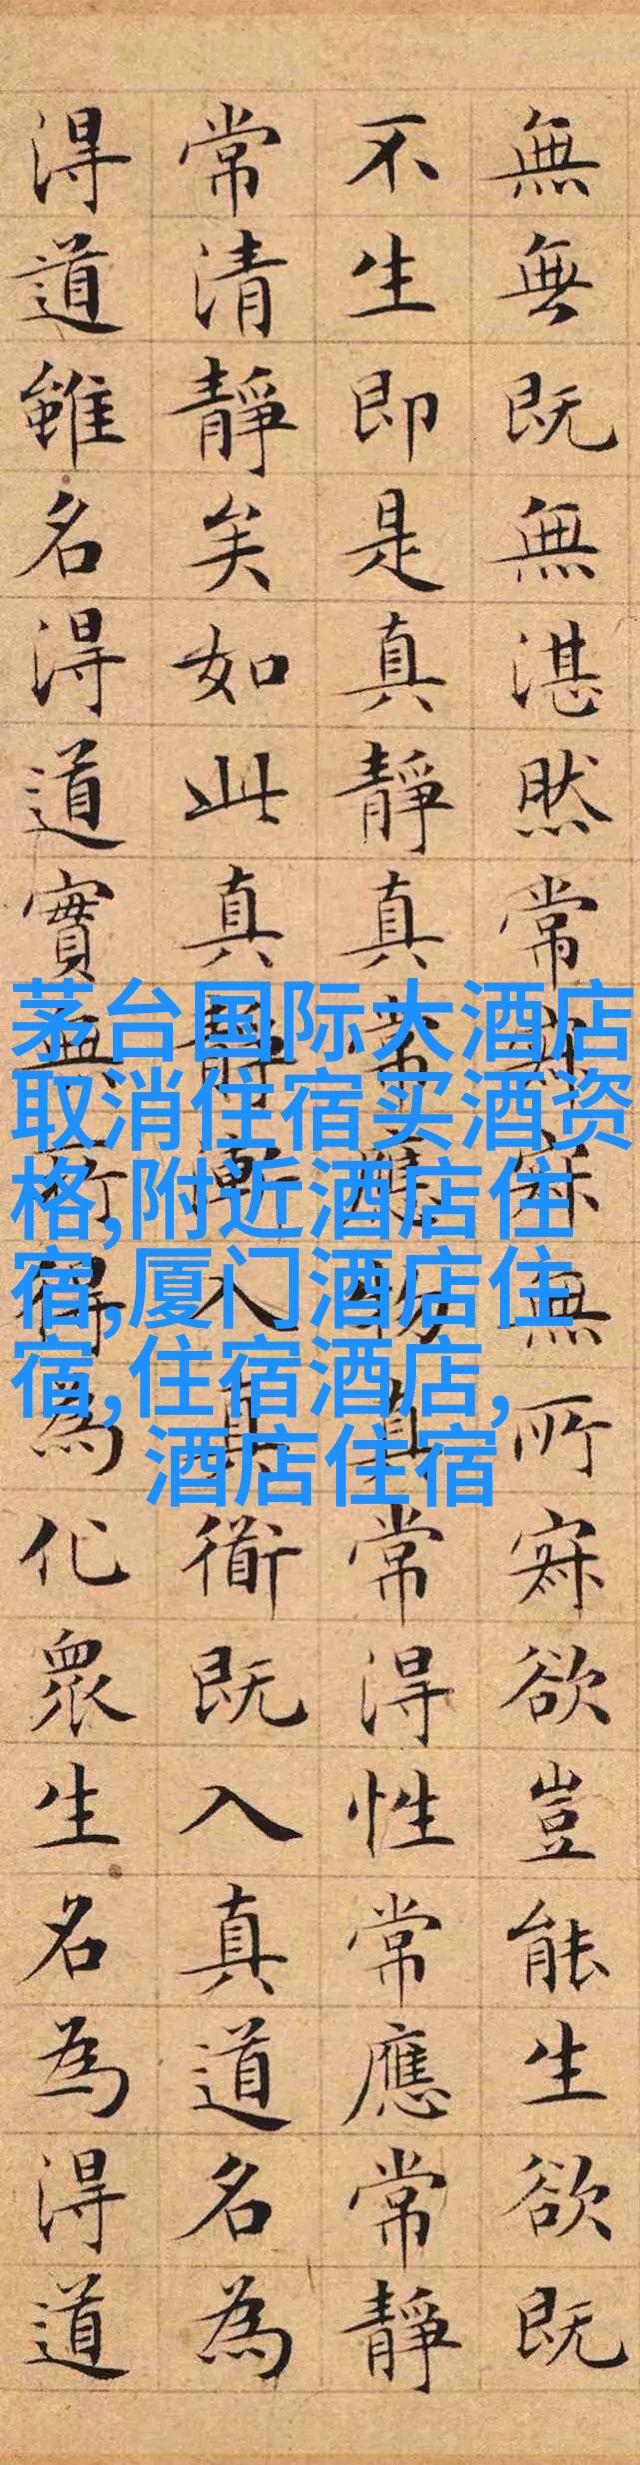 無無既無湛然常寂寂無所寂欲豈能生欲既
不生即是真靜真常應物真常得性常應常靜
常清靜矣如此真靜漸入真道既入真道名為
得道雖名得道實無所得為化眾生名為得道
茅台国际大酒店
取消住宿买酒资
格,附近酒店住
宿,厦门酒店住
宿,住宿酒店,
酒店住宿